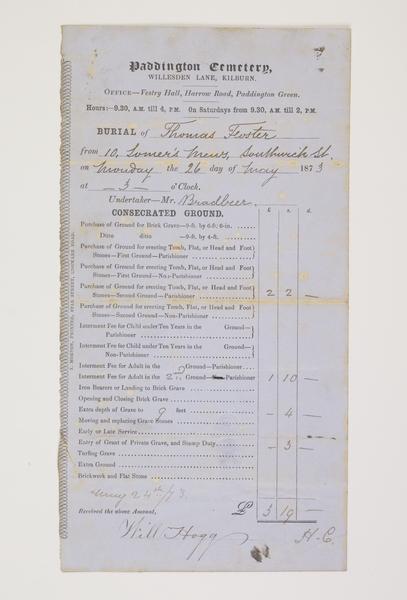 Paddington Cemetery,
WILLESDEN LANE, KILBURN.
OFFICE—Vestry Hall, Harrow Road, Paddington Green.
Hours:—9.30, A.M. till 4, P.M. On Saturdays from 9.30, A.M. till 2, P.M.
BURIAL of Thomas Foster
from 10, Somer's Mews, Southwick St.
on Monday the 26 day of May 1873
at —3— o'Clock.
Undertaker—Mr. Bradbeer
CONSECRATED GROUND. £ s. d.
Purchase of Ground for Brick Grave—9-ft. by 6-ft. 6-in.
Ditto ditto —9-ft. by 4-ft.
Purchase of Ground for erecting Tomb, Flat, or Head and Foot
Stones—First Ground—Parishioner
Purchase of Ground for erecting Tomb, Flat, or Head and Foot
Stones—First Ground—Non-Parishioner
Purchase of Ground for erecting Tomb, Flat, or Head and Foot
Stones—Second Ground—Parishioner 2 2 —
Purchase of Ground for erecting Tomb, Flat, or Head and Foot
Stones—Second Ground—Non-Parishioner
Interment Fee for Child under Ten Years in the Ground—
Parishioner
Interment Fee for Child under Ten Years in the Ground—
Non-Parishioner
Interment Fee for Adult in the Ground—Parishioner
Interment Fee for Adult in the 2nd Ground—Parishioner 1 10 —
Iron Bearers or Landing to Brick Grave
Opening and Closing Brick Grave
Extra depth of Grave to 9 feet — 4 —
Moving and replacing Grave Stones
Early or Late Service
Entry of Grant of Private Grave, and Stamp Duty — 3 —
Turfing Grave
Extra Ground
Brickwork and Flat Stone
May 24th/73.
Received the above Amount, £ 3 19 —
Will Hogg H.C.